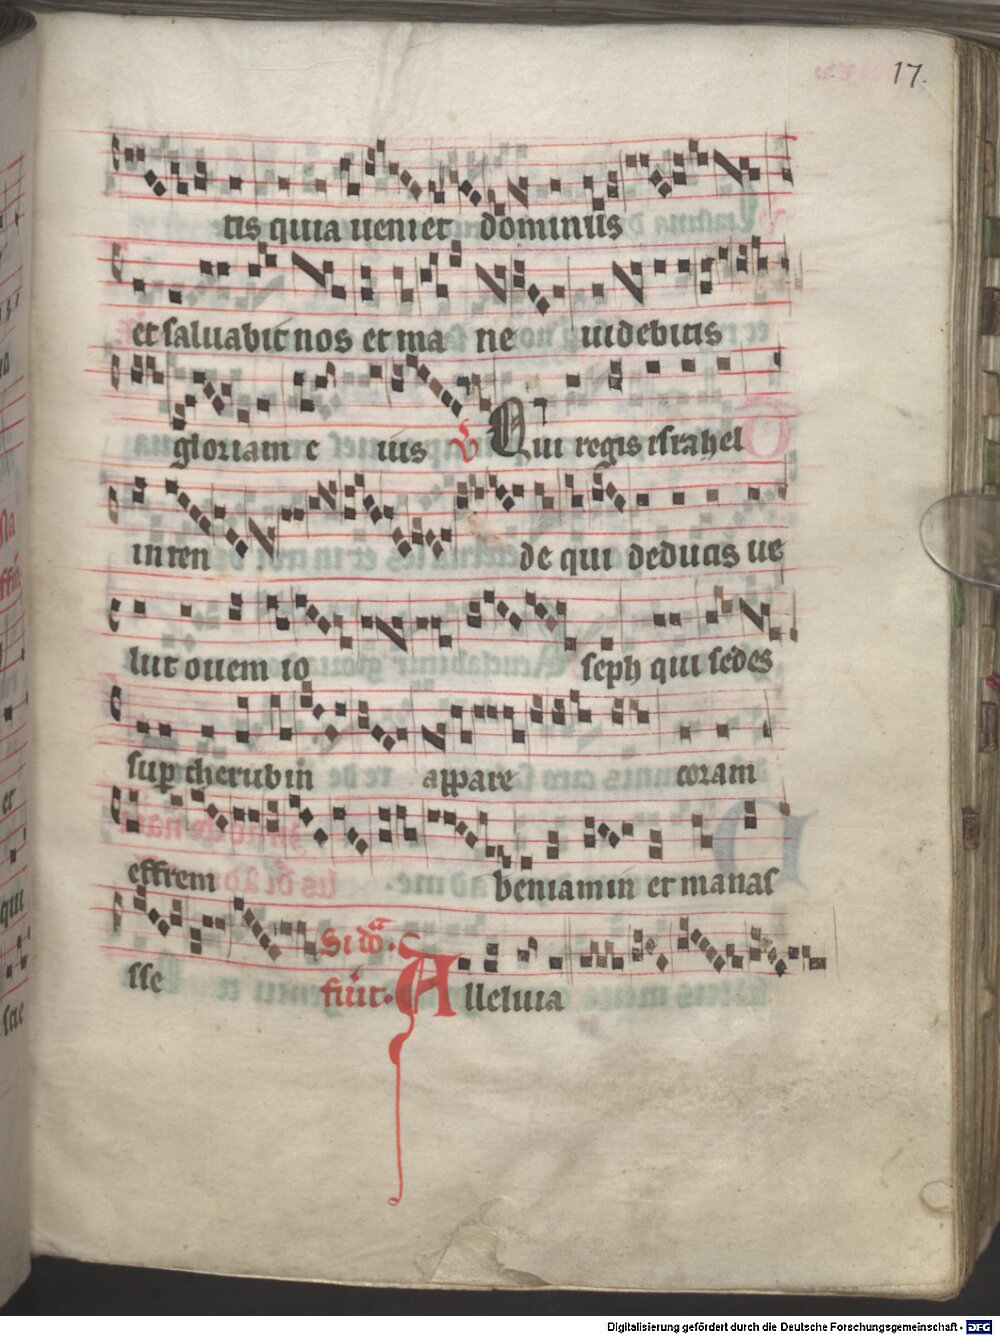 17.
tis quia ueniet dominus
et saluabit nos et ma ne uidebitis
gloriam e ius V Qui regis israhel
inten de qui deducis ue
lut ouem io seph qui sedes
sup cherubin appare coram
effrem beniamin et manas
sse Si dō.
fuīt. Alleluia
Digitalisierung gefördert durch die Deutsche Forschungsgemeinschaft - DFG